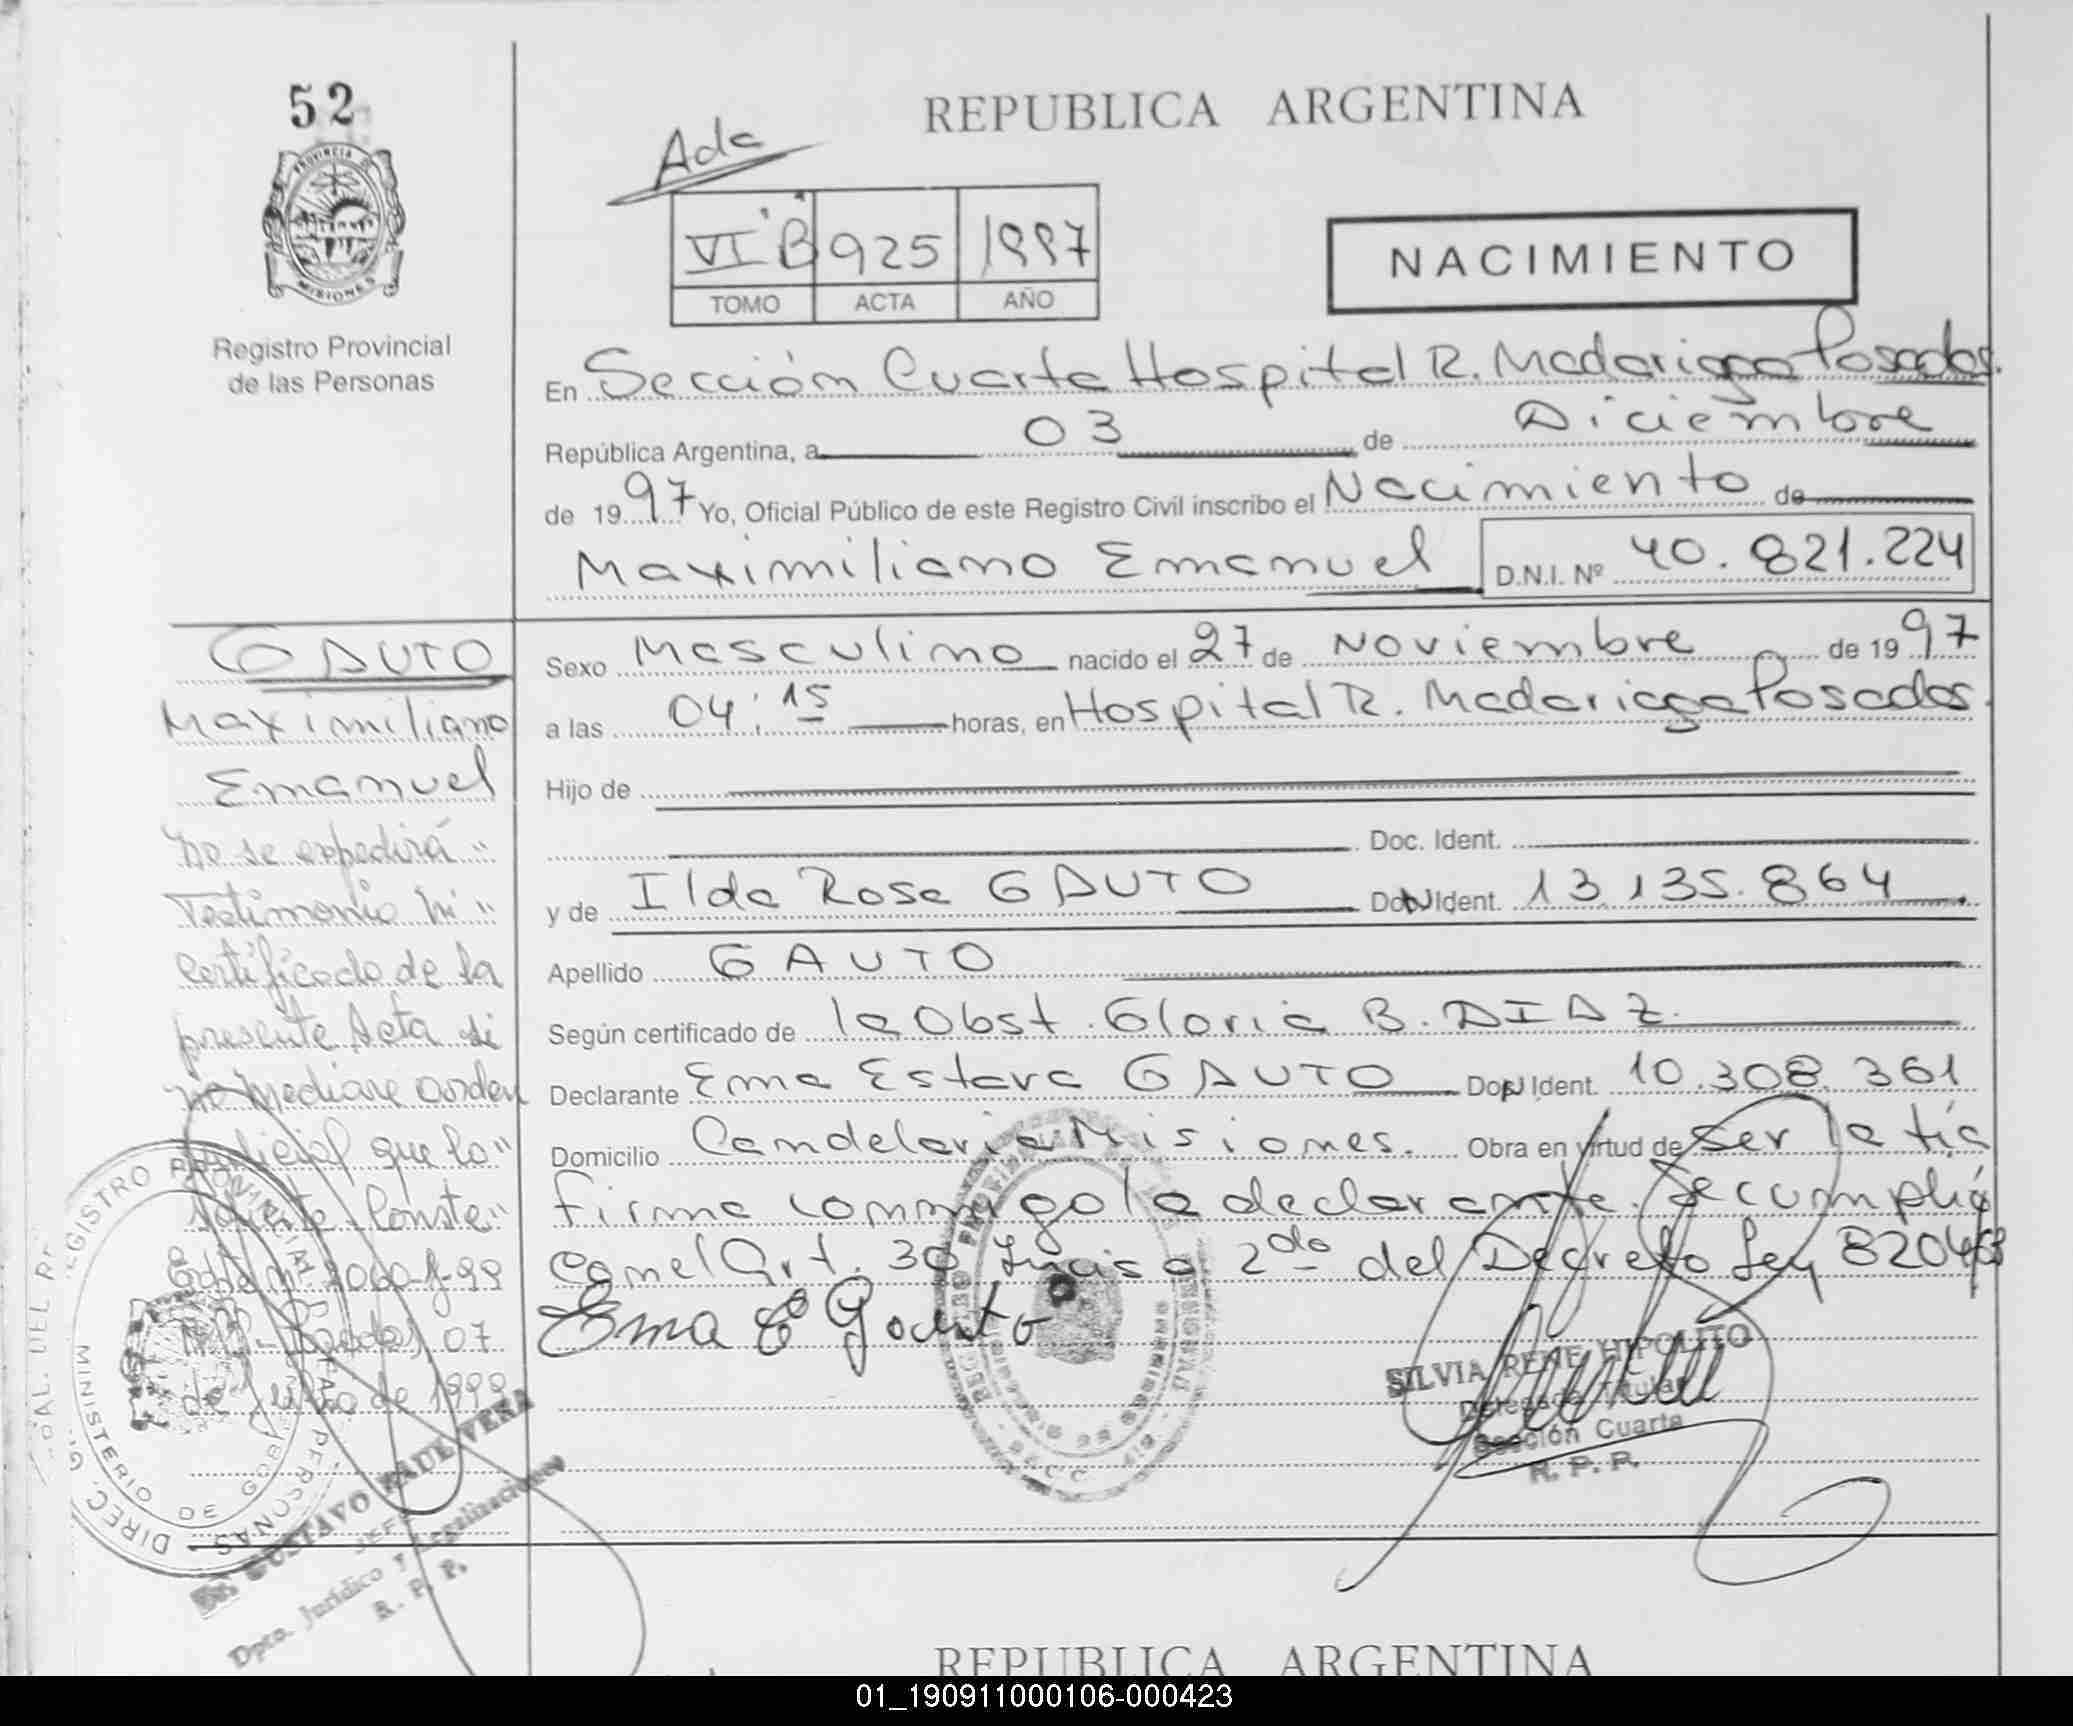 52
PROVINCIA DE
MISIONES
Registro Provincial
de las Personas
REPUBLICA ARGENTINA
Ada
VI "B" 925 1997
TOMO ACTA AÑO
NACIMIENTO
En Sección Cuarta Hospital R. Madariaga Posadas.
República Argentina, a 03 de Diciembre
de 1997 Yo, Oficial Público de este Registro Civil inscribo el Nacimiento de
Maximiliano Emanuel D.N.I. Nº 40.821.224
Sexo Masculino nacido el 27 de Noviembre de 1997
a las 04:15 horas, en Hospital R. Madariaga Posadas.
Hijo de
Doc. Ident.
y de Ilda Rosa GAUTO Ident. 13.135.864
Apellido GAUTO
Según certificado de la Obst. Gloria B. DIAZ.
Declarante Ema Estera GAUTO Ident. 10.308.361
Domicilio Candelaria Misiones. Obra en virtud de ser la tía
firma conmigo la declarante. Se cumplió
con el Art. 30 Inciso 2do del Decreto Ley 8204/63
Ema E Gauto
SILVIA RENE HIPOLITO
Delegada Titular
Sección Cuarta
R. P. P.
GAUTO
Maximiliano
Emanuel
no se expedirá"
Testimonio ni"
certificado de la
presente Acta si
no mediare orden
judicial que lo"
Conste"
07
de Julio de 1999
REGISTRO PROVINCIAL DE LAS PERSONAS
MINISTERIO DE GOB
DIREC. G
Dr. GUSTAVO RAUL VERA
JEFE
Dpto. Jurídico y Legalizaciones
R. P. P.
REPUBLICA ARGENTINA
01_190911000106-000423